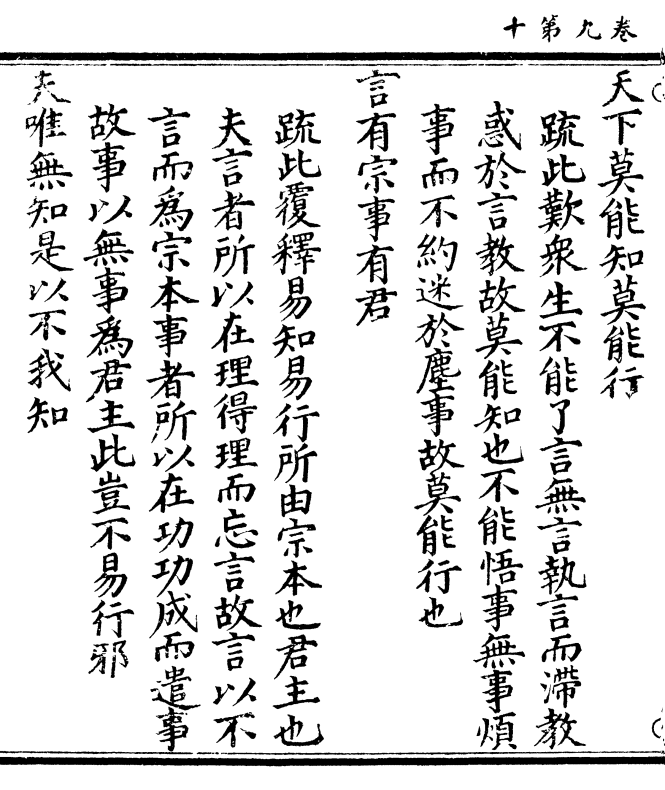 卷九第十
天下莫能知莫能行
疏此歎衆生不能了言無言執言而滯教
惑於言教故莫能知也不能悟事無事煩
事而不約迷於塵事故莫能行也
言有宗事有君
疏此覆釋易知易行所由宗本也君主也
夫言者所以在理得理而忘言故言以不
言而爲宗本事者所以在功功成而遣事
故事以無事爲君主此豈不易行邪
夫唯無知是以不我知